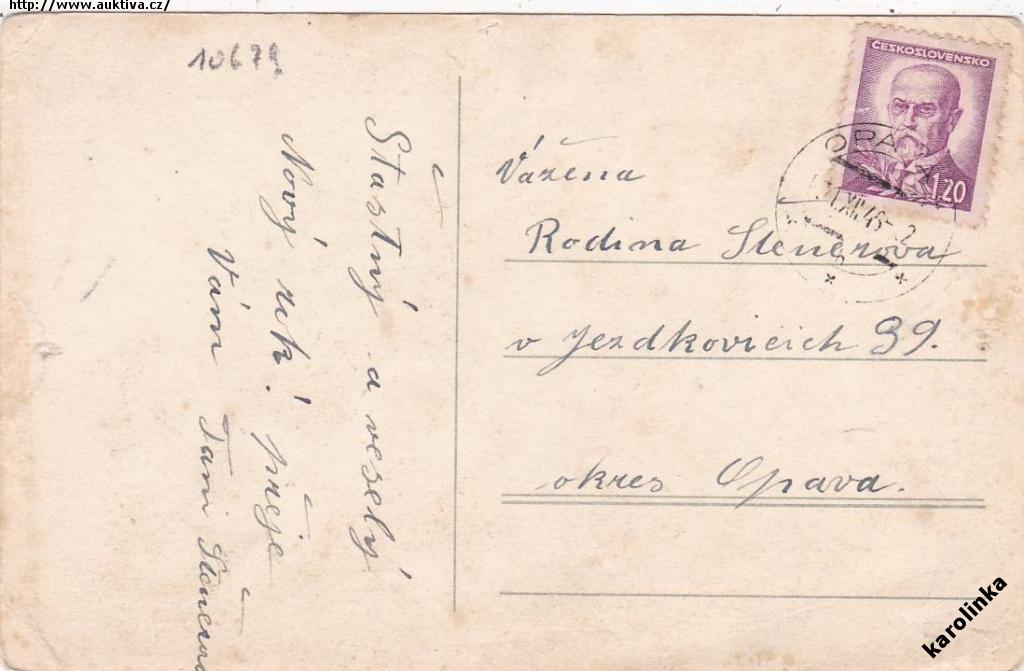 http://www.auktiva.cz/
10679
Šťastný a veselý
Nový rok! přeje
Vám Fam. Štěnerova
ČESKOSLOVENSKO
1.20
OPAVA
31.XII.46-2
Vážená
Rodina Stenerova
v Jezdkovicich 39.
okres Opava.
karolinka